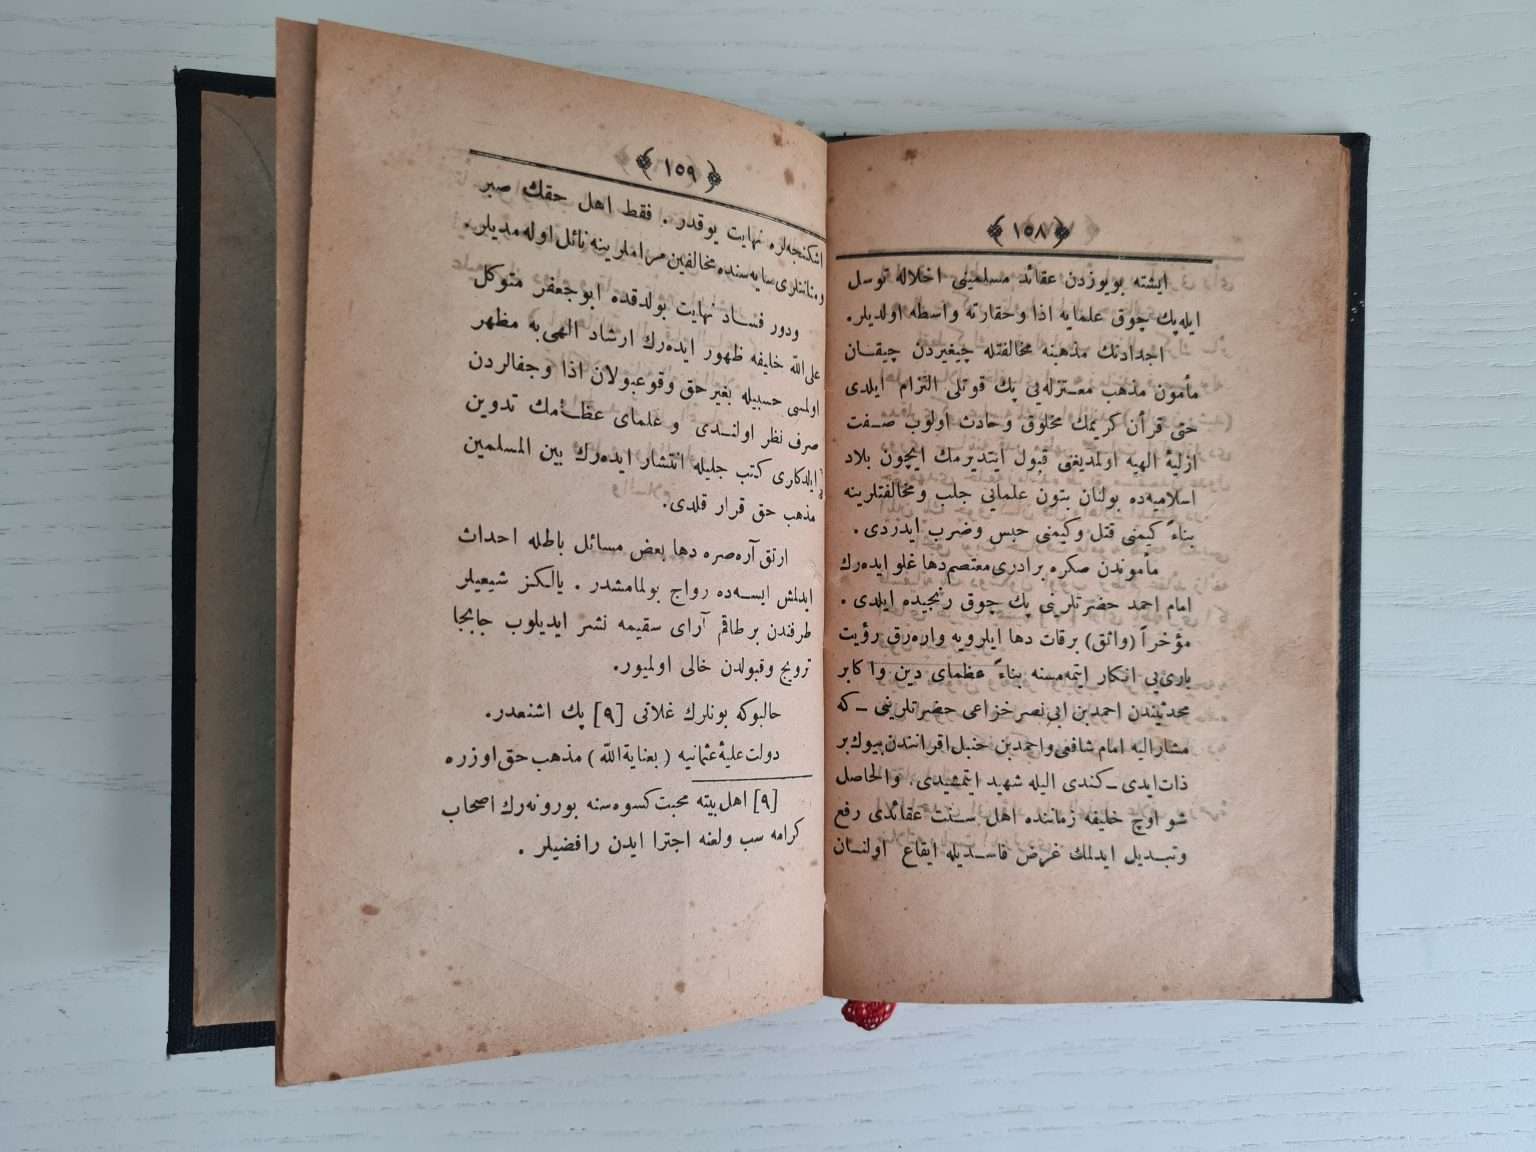 ﴿ ١٥٨ ﴾
ايشته بويوزدن عقائد مسلمينى اخلاله توسل
ايله پك چوق علمايه اذا وحقارته واسطه اولديلر.
اجدادنك مذهبنه مخالفتله چيغيردن چيقـان
مأمون مذهب معـتزله‌يى پك قوتلى التزام ايلدى
حتى قرآن كريمك مخلوق وحادث اولوب صـفت
ازليۀ الهيه اولمديغنى قبول ايتديرمك ايچون بلاد
اسلاميه‌ده بولنان بتون علمايى جلب ومخالفتلرينه
بناءً كيمنى قتل وكيمنى حبس وضرب ايدردى .
مأموندن صكره برادرى معتصم دها غلو ايده‌رك
امام احمد حضرتلرينى پك چوق رنجيده ايلدى .
مؤخراً (واثق) برقات دها ايلرويه واره‌رق رؤيت
بارى‌يى انكار ايتمه‌مسنه بناءً عظماى دين واكابر
محدثيندن احمدبن ابى نصر خزاعى حضرتلرينى ــ كه
مشاراليه امام شافعى واحمدبن حنبل اقرانندن بيوك بر
ذات ايدى ــ كندى اليله شهيد ايتمشيدى. والحاصل
شو اوچ خليفه زماننده اهل سـنت عقائدى رفع
وتبـديل ايدلمك غرض فاسـديله ايقاع اولنـان
﴿ ١٥٩ ﴾
اشكنجه‌لره نهايت يوقدر . فقط اهل حقك صبر
ومتانتلرى سايه‌سنده مخالفين مراملرينه نائل اوله‌مديلر.
ودور فسـاد نهايت بولدقده ابوجعفر متوكل
على اللّه خليفه ظهور ايده‌رك ارشاد الهى‌يه مظهر
اولمسى حسبيله بغير حق وقوعبولان اذا وجفالردن
صرف نظر اولنـدى و علماى عظـامك تدوين
ايلدكارى كتب جليله انتشار ايده‌رك بين المسلمين
مذهب حق قرار قلدى.
ارتق آره‌صره دها بعض مسائل باطله احداث
ايدلمش ايسـه‌ده رواج بولمامشدر . يالكز شيعيلر
طرفندن بر طاقم آراى سقيمه نشر ايديلوب جابجا
ترويج وقبولدن خالى اولميور.
حالبوكه بونلرك غلاتى [٩] پك اشنعدر.
دولت عليۀ عثمانيه (بعناية اللّه) مذهب حق اوزره
[٩] اهل بيته محبت كسوه‌سنه بورونه‌رك اصحاب
كرامه سب ولعنه اجترا ايدن رافضيلر .